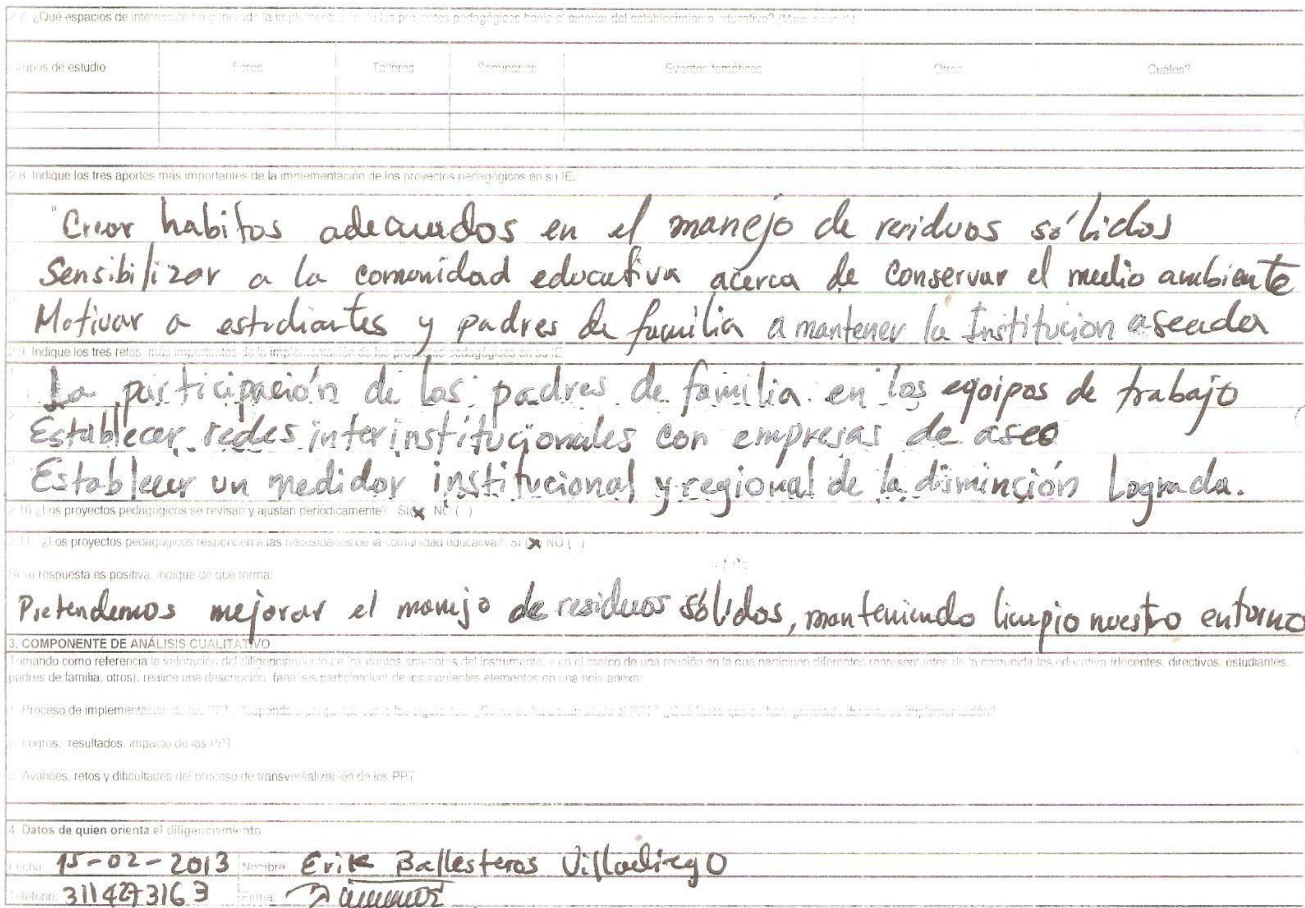 2.7 ¿Qué espacios de interacción ha generado la implementación de los proyectos pedagógicos hacia el exterior del establecimiento educativo?
grupos de estudio Foros Talleres Seminarios Eventos temáticos Otros Cuáles?
2.8 Indique los tres aportes más importantes de la implementación de los proyectos pedagógicos en su IE.
Crear habitos adecuados en el manejo de residuos sólidos
Sensibilizar a la comunidad educativa acerca de conservar el medio ambiente
Motivar a estudiantes y padres de familia a mantener la Institucion aseada
2.9 Indique los tres retos más importantes de la implementación de los proyectos pedagógicos en su IE
La participación de los padres de familia en los equipos de trabajo
Establecer redes interinstitucionales con empresas de aseo
Establecer un medidor institucional y regional de la disminción Lograda.
2.10 ¿Los proyectos pedagógicos se revisan y ajustan periódicamente? SI (X) NO ( )
2.11 ¿Los proyectos pedagógicos responden a las necesidades de la comunidad educativa? SI (X) NO ( )
Si su respuesta es positiva, indique de que forma:
Pretendemos mejorar el manejo de residuos sólidos, manteniendo limpio nuestro entorno
3. COMPONENTE DE ANÁLISIS CUALITATIVO
Tomando como referencia la valoración del diligenciamiento de los puntos anteriores del instrumento, y en el marco de una reunión en la que participen diferentes representantes de la comunidad educativa (docentes, directivos, estudiantes,
padres de familia, otros), realice una descripción (análisis participativo) de los siguientes elementos en una hoja anexa:
1. Proceso de implementación de los PPT
2. Logros, resultados, impacto de los PPT.
3. Avances, retos y dificultades del proceso de transversalización de los PPT
4. Datos de quien orienta el diligenciamiento
Fecha: 15-02-2013 Nombre: Erik Ballesteros Villadiego
Teléfono: 3114273163 Firma: